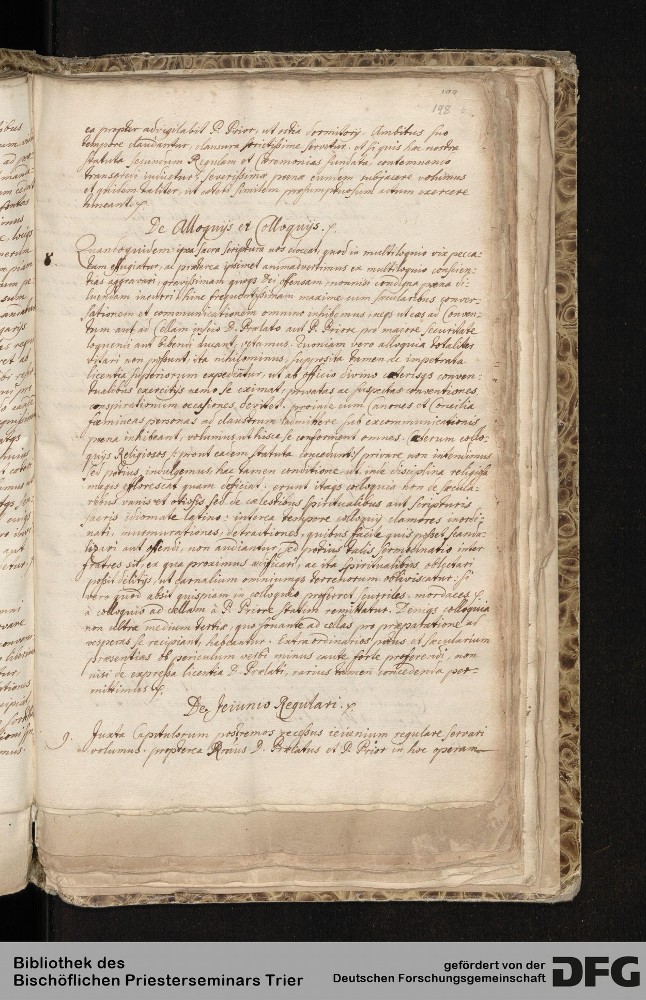 199
198
ea propter advigilabit P. Prior, ut ostia dormitorij, Ambitus suo
tempore claudantur, clausura strictissime servetur. et si quis hac nostra
statuta secundum Regulam et Ceremonias fundata contemnendo
transgredi videtur, severissima poena eundem subjacere volumus
et quidem taliter, ut ceteri similem presumptuosum actum exercere
timeant.
De Alloquijs et Colloquijs.
8. Quandoquidem ipsa sacra scriptura nos doceat, quod in multiloquio vix pecca-
tum effugiatur, ac praeterea ipsimet animadvertimus ex multiloquio conscien-
tias aggravari, gravissimam quoque Dei offensam nonnisi condigna poena di-
luendam incurri; hinc frequentissimam maxime cum saecularibus conver-
sationem et communicationem omnino inhibemus, neque ut eas ad Conven-
tum aut ad Cellam inscio D. Praelato aut P. Priore pro majore securitate
loquendi aut bibendi ducant, vetamus. Quoniam vero alloquia totaliter
vitari non possunt, ita nihilominus, supposita tamen de impetrata
licentia superiorum expediatur, ut ab officio divino caeterisque conven-
tualibus exercitijs nemo se eximat, privatas ac suspectas conventiones,
conspirationum occasiones, devitet. proinde cum Canones et Concilia
foemineas personas ad claustrum admittere sub excommunicationis
poena inhibeant, volumus ut hisce se conforment omnes. Caeterum collo-
quijs Religiosos prout eadem statuta concedunt privare non intendimus
sed potius indulgemus hac tamen conditione, ut inde disciplina religiosa
magis efflorescat quam deficiat. erunt itaque colloquia non de saecula-
ribus vanis et otiosis sed de caelestibus spiritualibus aut scripturis
sacris idiomate latino: interea tempore colloquij clamores inordi-
nati, murmurationes, detractiones, quibus facile quis posset scanda-
lizari aut offendi, non audiantur, sed potius talis sermocinatio inter
fratres sit, ex qua proximus aedificari, ac ita spiritualibus oblectari
possit delitijs, ut carnalium omniumque terrenorum obliviscatur: si
vero quod absit quispiam in colloquio proferret scurriles, mordaces
à colloquio ad cellam à P. Priore statim remittatur. Denique colloquia
non ultra medium tertiae, quo sonante ad cellas pro praeparatione ad
vesperas se recipiant, habeantur. Extraordinarios potus et saecularium
praesentias ob periculum verbi minus caute forte proferendi, non
nisi de expressa licentia D. Praelati, rarius tamen concedenda per-
mittimus.
De Jeiunio Regulari.
9. Juxta Capitulorum postremos recessus ieiunium regulare servari
volumus. propterea Rmus D. Praelatus et P. Prior in hoc operam
Bibliothek des
Bischöflichen Priesterseminars Trier
gefördert von der
Deutschen Forschungsgemeinschaft
DFG